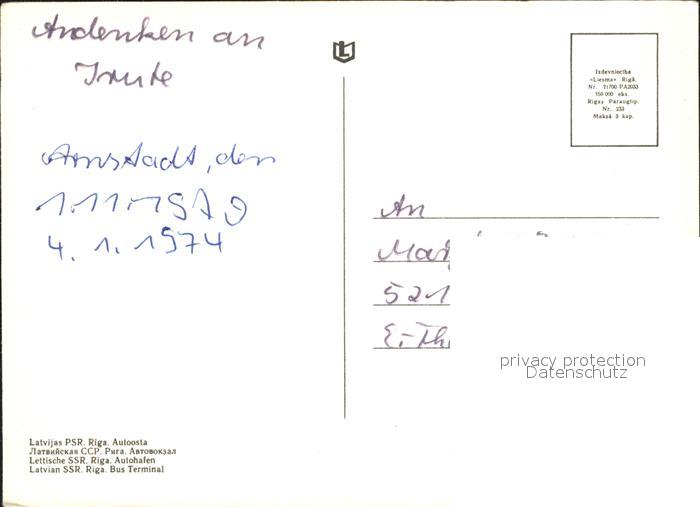 Andenken an
Trute
Arnstadt, den
1.11.1970
4. 1. 1974
Izdevniecība
«Liesma» Rīgā.
Nr. 71700 PA2033
150 000 eks.
Rīgas Paraugtip.
Nr. 233
Maksā 3 kap.
An
521
privacy protection
Datenschutz
Latvijas PSR. Rīga. Autoosta
Латвийская ССР. Рига. Автовокзал
Lettische SSR. Riga. Autohafen
Latvian SSR. Riga. Bus Terminal